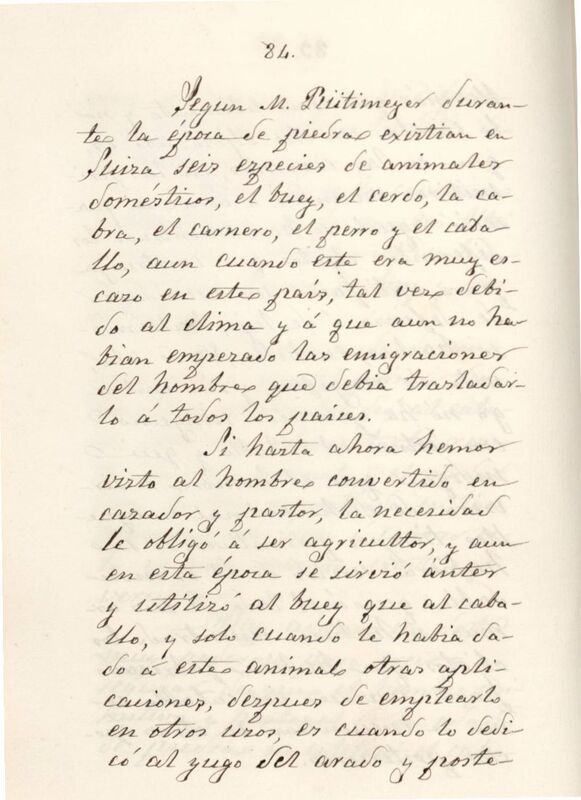 84.
Segun M. Rütimeyer duran-
te la época de piedra existian en
Suiza seis especies de animales
domésticos, el buey, el cerdo, la ca-
bra, el carnero, el perro y el caba-
llo, aun cuando este era muy es-
cazo en este país, tal vez debi-
do al clima y á que aun no ha-
bian empezado las emigraciones
del hombre que debia trasladar-
lo á todos los países.
Si hasta ahora hemos
visto al hombre convertido en
cazador y pastor, la necesidad
le obligó á ser agricultor, y aun
en esta época se sirvió ántes
y utilizó al buey que al caba-
llo, y solo cuando le habia da-
do á este animal otras apli-
caciones, despues de emplearlo
en otros usos, es cuando lo dedi-
có al yugo del arado y poste-